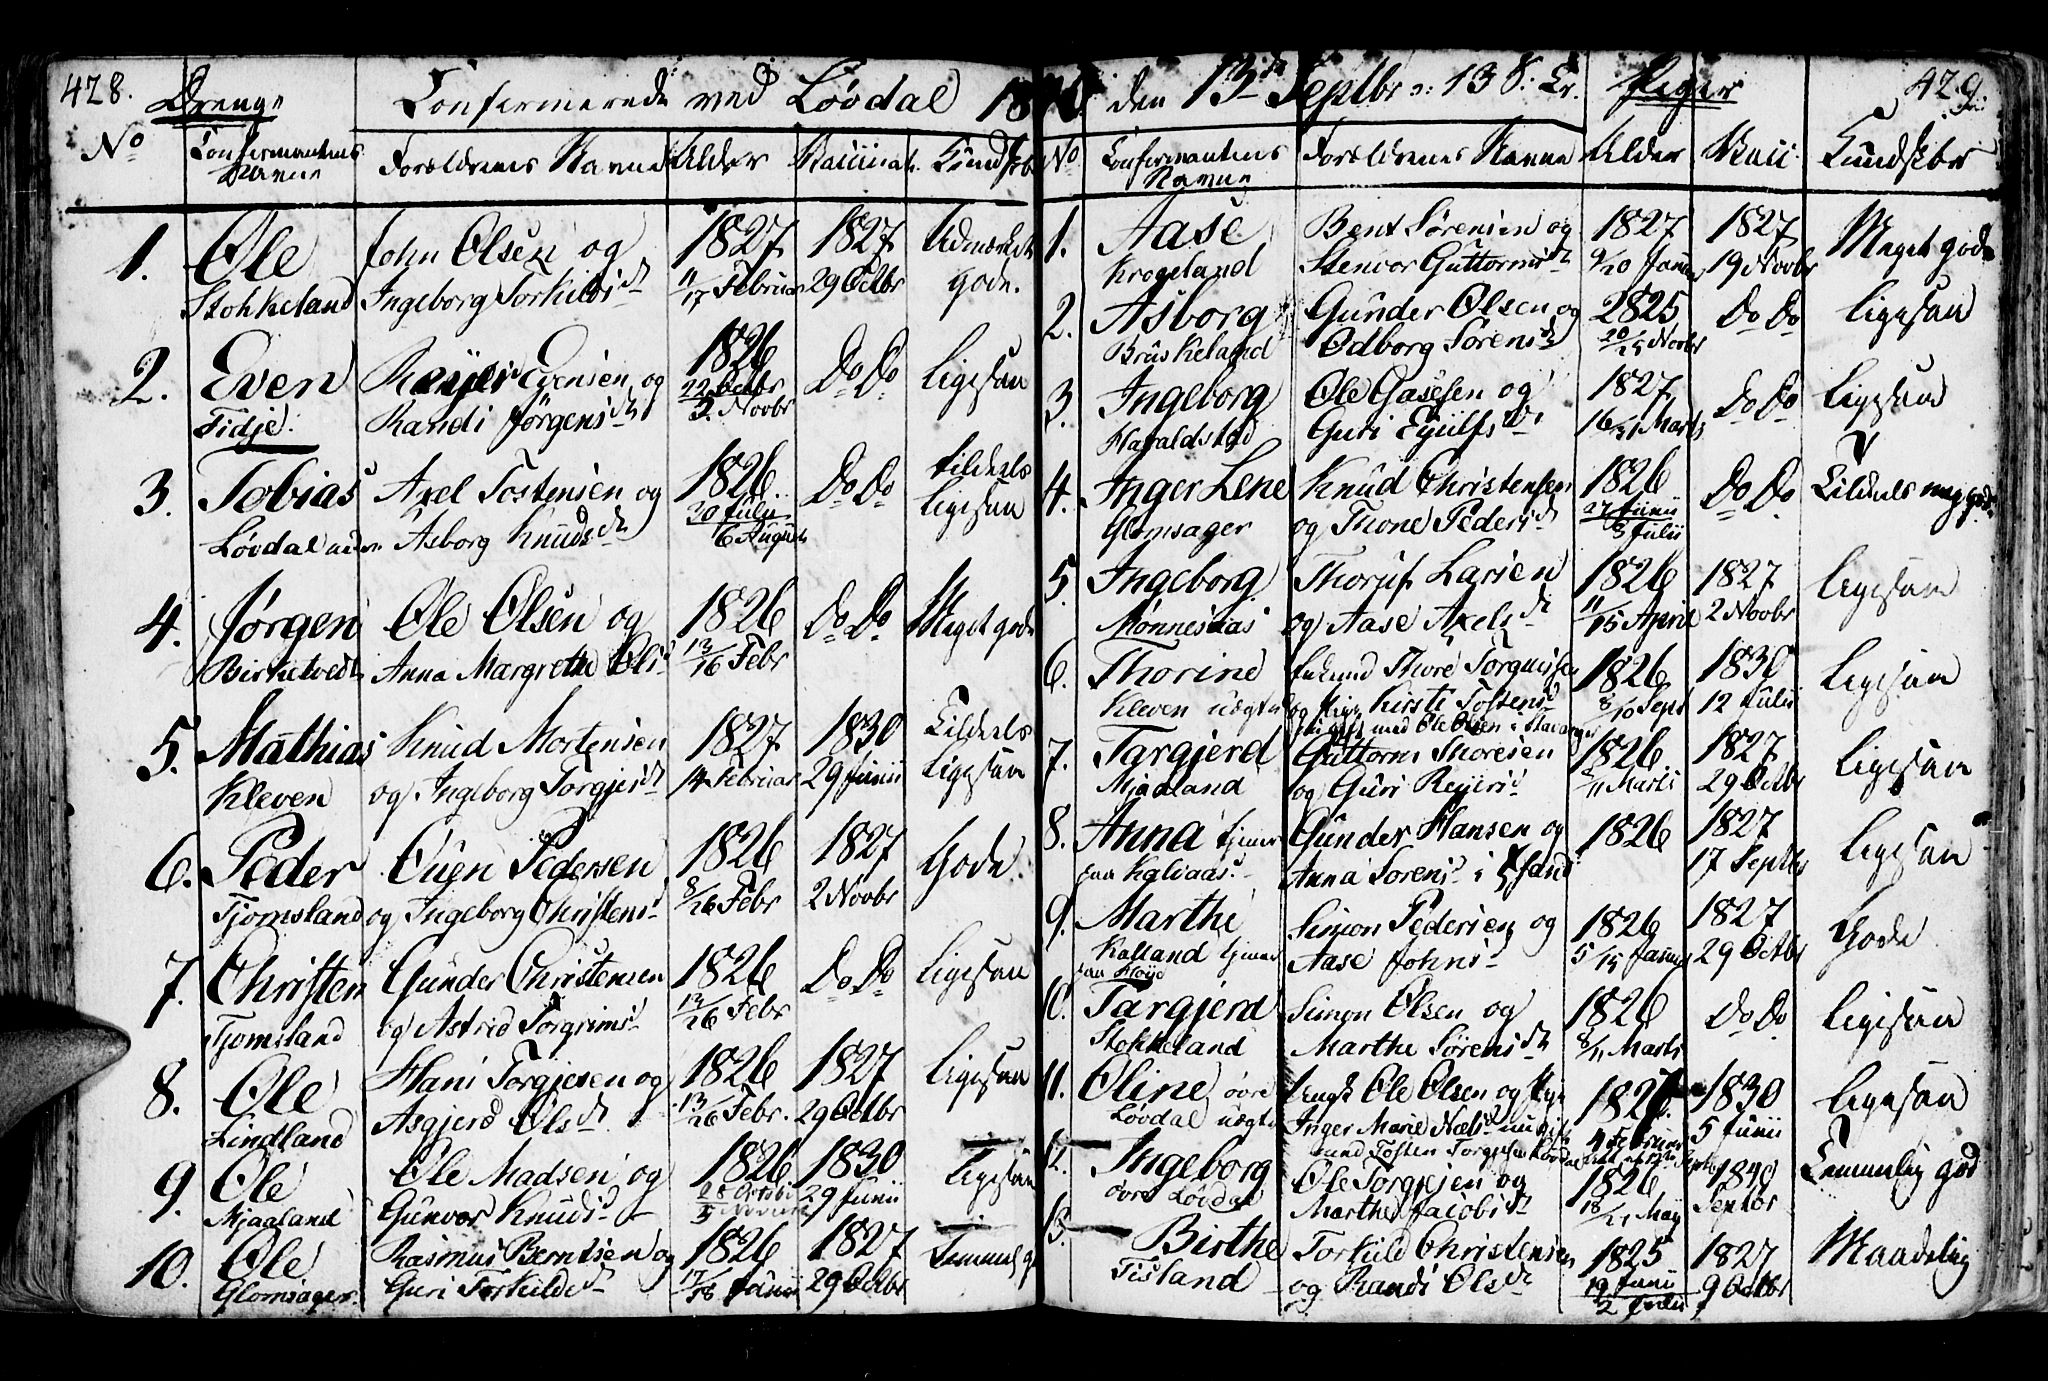 428.
Drenge
Confirmerede ved Løvdal 18
No
Confirmantens Navne
Forældrenes Navne
Alder
Kundsk
1. Ole
Stokkeland
John Olsen og
Ingeborg Torkildsdr
1827
11/17 Februar
1827
29 Octbr
Udmærket
gode.
2. Even
Tidje.
Reijer Evensen og
Randi Jørgensdr
1826
22 Octbr
5 Novbr
Do Do
Ligesaa
3. Tobias
Løvdal
Axel Tostensen og
Asborg Knudsdr
1826
30 Julii
6 August
Do Do
Ligesaa
4. Jørgen
Birketvedt
Ole Olsen og
Anna Margrethe Ols
1826
13/16 Febr
Do Do
Meget gode
5. Mathias
Kleven
Knud Mortensen
og Ingeborg Torgjusdr
1827
14 Februar
1830
29 Junii
Ligesaa
6. Peder
Tjomsland
Ouen Pedersen
og Ingeborg Christens
1826
8/26 Febr
1827
2 Novbr
Gode.
7. Christen
Tjomsland
Gunder Christensen
og Astrid Torgrims
1826
13/26 Febr
Do Do
Ligesaa
8. Ole
Lindland
Hans Torgjesen og
Asgjerd Olsdr
1826
13/26 Febr.
1827
29 Octbr
Ligesaa
9. Ole
Mjaaland
Ole Madsen og
Gunvor Knuds
1826
1830
29 Junii
Ligesaa
10. Ole
Glomsager.
Rasmus Berntsen og
Guri Torkilds
1826
17/18 Junii
1827
29 Octbr
Temmel
den 13de Septbr
Piger
429
No
Confirmantens
Navne
Forældrenes Navne
Alder
Vacc
Kundskbr
1. Aase
Krogeland
Bent Sørensen og
Stenvor Guttormsdr
1827
9/20 Januar
1827
19 Novbr
Meget gode
2. Asborg
Bruskeland
Gunder Olsen og
Odborg Sørensdr
2825
20/25 Novbr
Do Do
Ligesaa
3. Ingeborg
Haraldstad
Ole Gasesen og
Guri Egulfsdr
1827
16/31 Marts
Do Do
Ligesaa
4. Inger Lene
Glomsager
Knud Christensen
og Thone Pedersdr
1826
27 Junii
3 Julii
Do Do
5. Ingeborg
Monnesnas
Thoruf Larsen
og Aase Axelsdr
1826
11/15 April
1827
2 Novbr
Ligesaa
6. Thorine
Kleven uægte
Thore Torgussen
og Pige Kirsti Tostensd
gift med Ole Olsen i Stavanger
1826
8/10 Sept
1830
12 Julii
Ligesaa
7. Targjerd
Mjaaland
Guttorm Thoresen
og Guri Reijers
1826
5/11 Marts
1827
29 Octbr
Ligesaa
8. Anna tjener
paa Kalvaas.
Gunder Hansen og
Anna Sorens i
1826
1827
17 Septbr
Ligesaa
9. Marthe
Kalland tjener
Simon Pedersen og
Aase Johns
1826
5/15 Januar
1827
29 Octbr
Gode
10. Targjerd
Stokkeland
Simon Olsen og
Marthe Sørensdr
1826
8/11 Marts
Do Do
Ligesaa
11. Oline øvre
Løvdal uægte
Ungk Ole Olsen og Pige
Inger Marie Nelsdr
4 Februar
1830
5 Junii
Ligesaa
12. Ingeborg
øvre Løvdal
Ole Torgjesen og
Marthe Jacobsdr
1826
18/21 May
1840
Septbr
Temmelig god
13. Birthe
Tisland
Torkild Christensen
og Randi Olsdr
1825
19 Junii
2 Julii
1827
9 Octbr
Maadelig